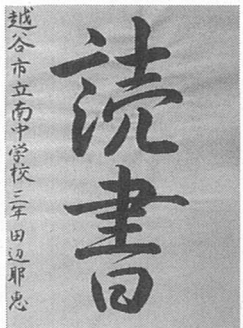 読書
越谷市立南中学校 三年 田辺耶恵